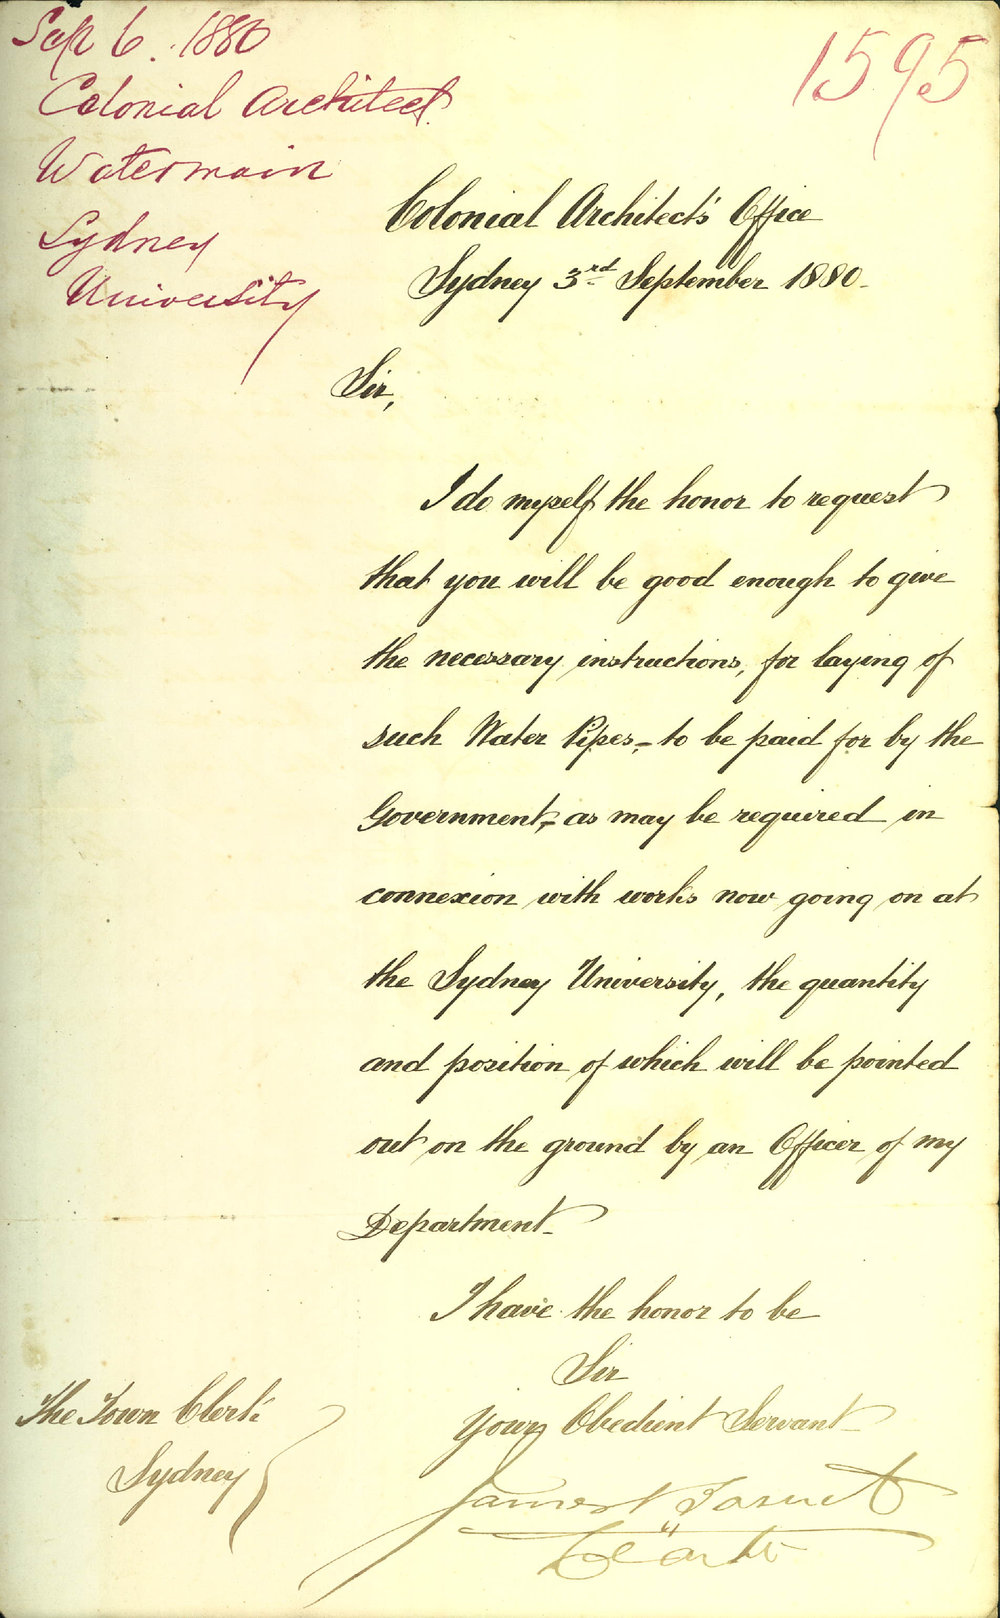 Sept 6. 1880
Colonial Architect.
Watermain
Sydney
University
1595
Colonial Architect's Office
Sydney 3rd September 1880.
Sir,
I do myself the honor to request
that you will be good enough to give
the necessary instructions, for laying of
such Water Pipes,- to be paid for by the
Government,- as may be required in
connexion with works now going on at
the Sydney University, the quantity
and position of which will be pointed
out on the ground by an Officer of my
Department.
I have the honor to be
Sir
Your Obedient Servant
James Barnet
Col Archt
The Town Clerk
Sydney